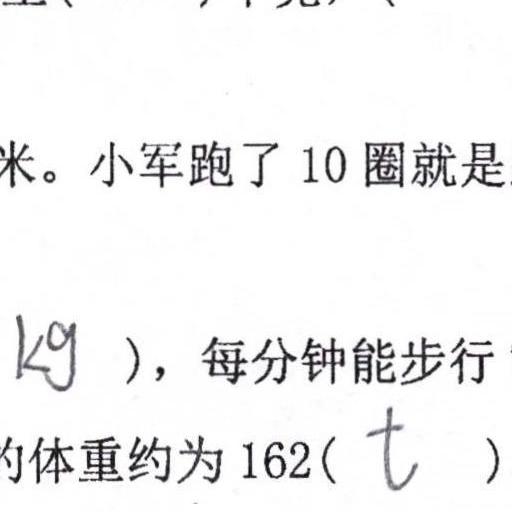 米。小军跑了 10 圈就是
kg ），每分钟能步行
的体重约为 162( t )